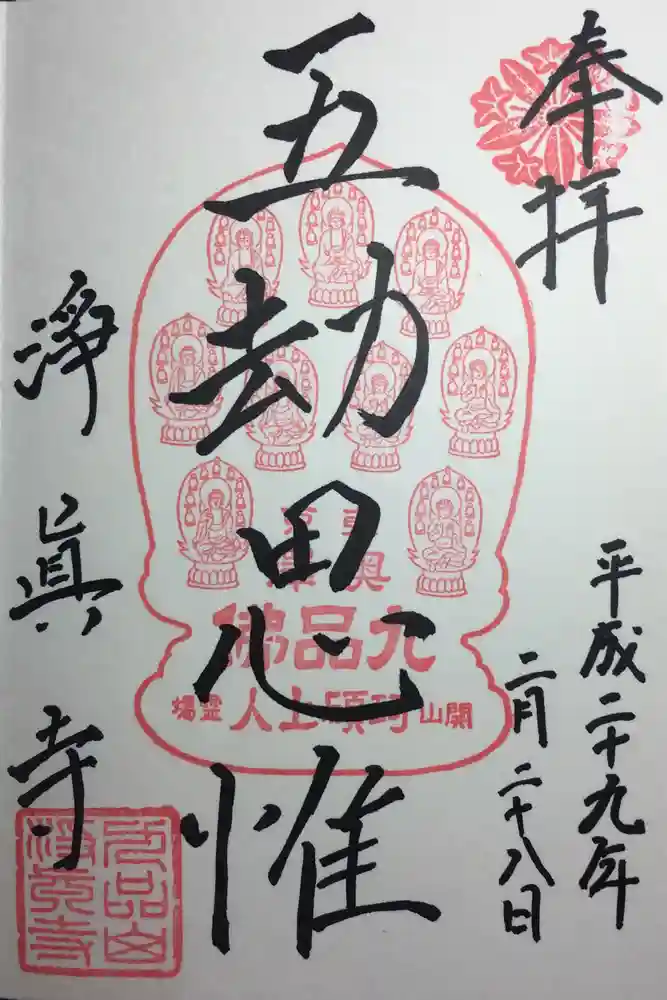 奉拝
平成二十九年
二月二十八日
五劫思惟
東京
奥澤
九品佛
開山珂碩上人霊場
淨眞寺
九品山
淨眞寺